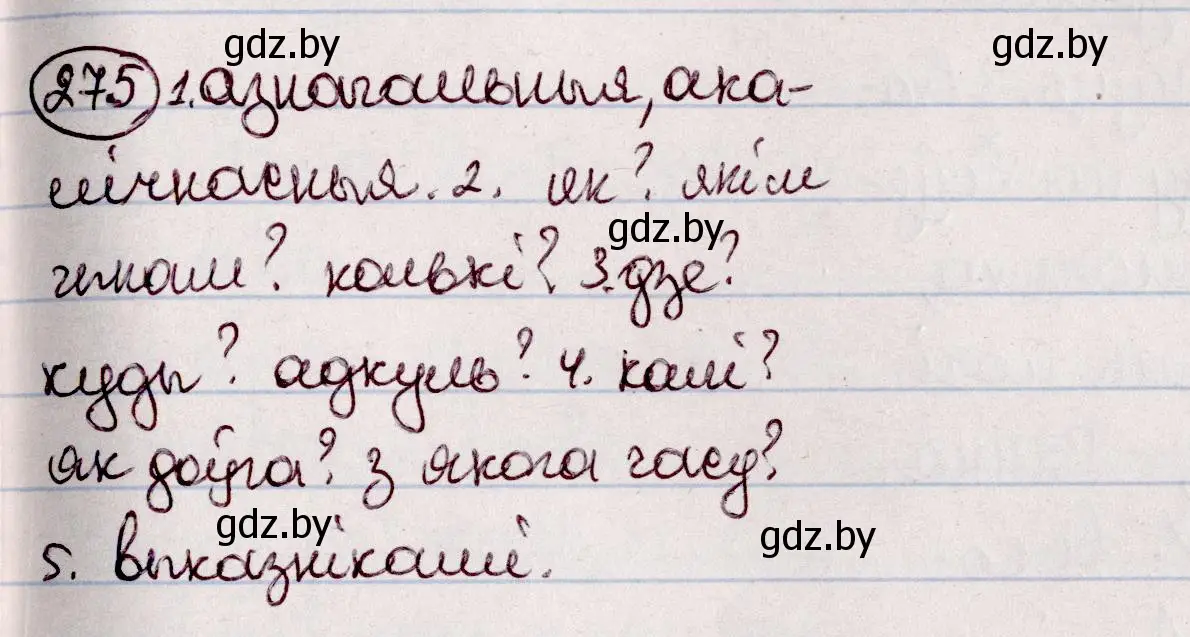 gdz.by
gdz.by
275 1. азнагальныя, ака-
лічнасныя. 2. як? якім
gdz.by
чынам? колькі? 3. дзе?
куды? адкуль? 4. калі?
як доўга? з якога часу?
gdz.by
gdz.by
5. выказнікамі.